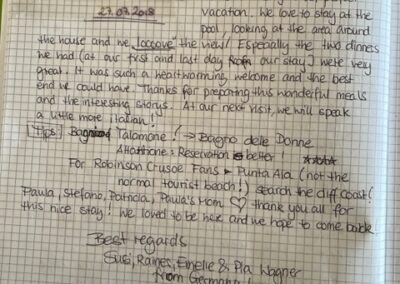 27.07.2018
vacation. We love to stay at the
pool, looking at the area around
the house and we looooove the view! Especially the two dinners
we had (at our first and last day from our stay) were very
great. It was such a heartwarming welcome and the best
end we could have. Thanks for preparing this wonderful meals
and the interesting storys. At our next visit, we will speak
a little more italian!
Tips: Talamone! → Bagno delle Donne
Attentione: Reservation is better!
For Robinson Crusoe Fans ► Punta Ala (not the
normal tourist beach!) search the cliff coast!
Paula, Stefano, Patricia, Paula's Mom ♡ thank you all for
this nice stay! We loved to be here and we hope to come back.
Best regards
Susi, Raines, Emelie & Pia Wagner
from Germany!